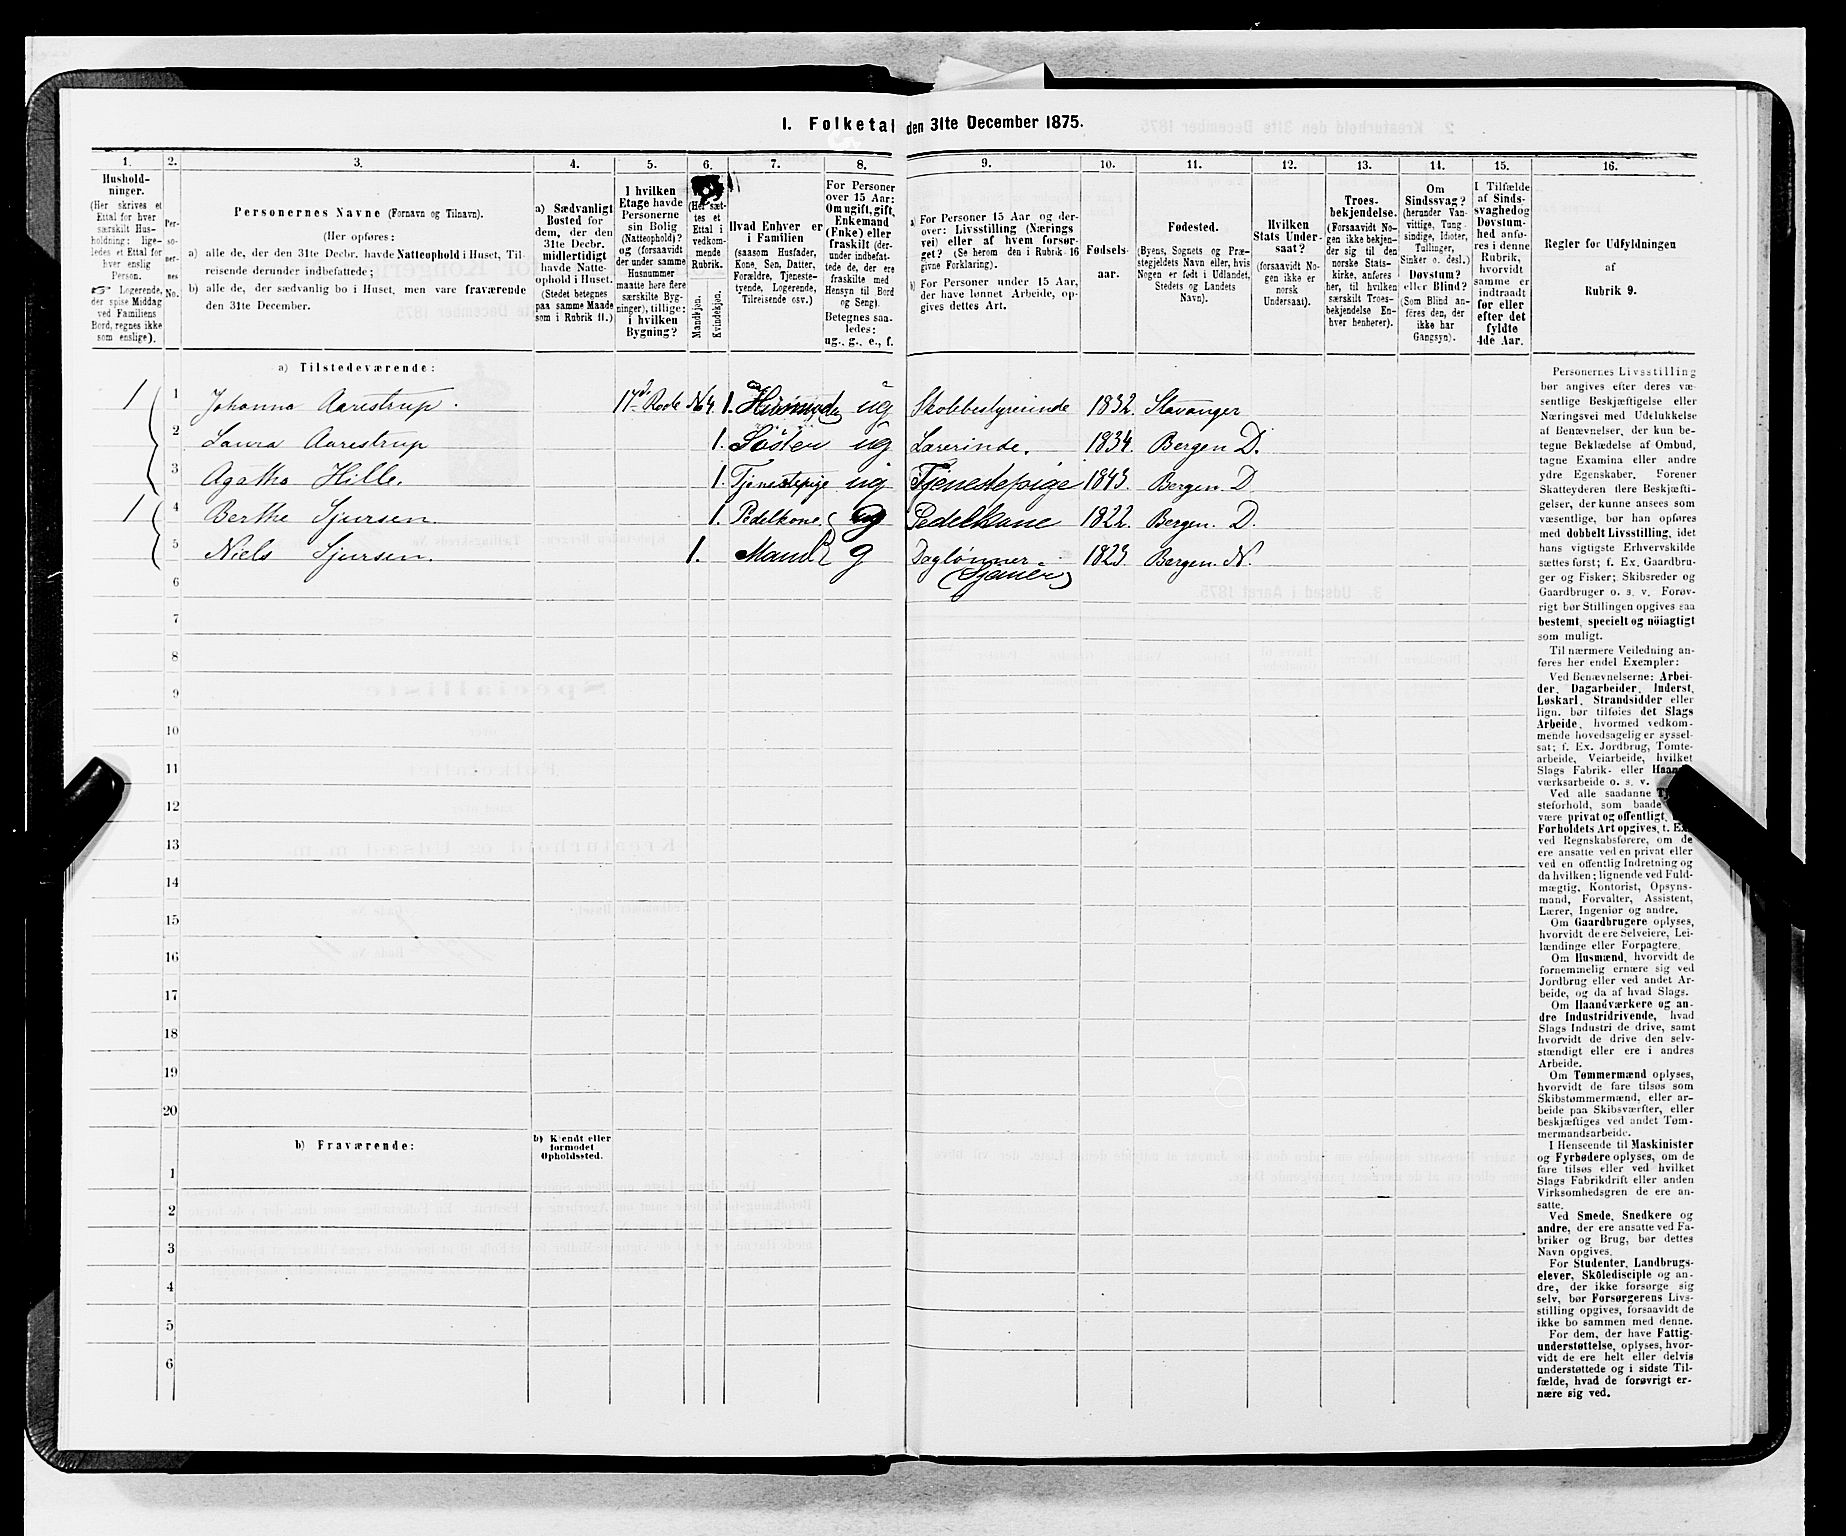 1. Folketal den 31te December 1875.
1. 2. 3. 4. 5. 6. 7. 8. 9. 10. 11. 12. 13. 14. 15. 16.
Hushold-
ninger.
(Her skrives et
Ettal for hver
særskilt Hus-
holdning; lige-
ledes et Ettal for
hver enslig
Person.
☞ Logerende,
der spise Middag
ved Familiens
Bord, regnes ikke
som enslige).
Per-
so-
ner-
nes
No.
Personernes Navne (Fornavn og Tilnavn).
(Her opføres:
a) alle de, der den 31te Decbr. havde Natteophold i Huset, Til-
reisende derunder indbefattede;
b) alle de, der sædvanlig bo i Huset, men vare fraværende
den 31te December.
a) Sædvanligt
Bosted for
dem, der den
31te Decbr.
midlertidigt
havde Natte-
ophold i Huset.
(Stedet betegnes
paa samme Maade
som i Rubrik 11.)
I hvilken
Etage havde
Personerne
sin Bolig
(Natteophold)?
og (forsaavidt
der under samme
Husnummer
maatte høre flere
særskilte Byg-
ninger), tillige:
i hvilken
Bygning?
(Her sæt-
tes et
Ettal i
vedkom-
mende
Rubrik.
Mandkjøn.
Kvindekjøn.
Hvad Enhver er
i Familien
(saasom Husfader,
Kone, Søn, Datter,
Forældre, Tjeneste-
tyende, Logerende,
Tilreisende osv.)
For Personer
over 15 Aar:
Om ugift, gift,
Enkemand
(Enke) eller
fraskilt (der-
under indbefat-
tede de, der ere
fraskilte med
Hensyn til Bord
og Seng).
Betegnes saa-
ledes:
ug., g., e., f.
a) For Personer 15 Aar og der-
over: Livsstilling (Nærings
vei) eller af hvem forsør-
get? (Se herom den i Rubrik 16
givne Forklaring).
b) For Personer under 15 Aar,
der have lønnet Arbeide, op-
gives dettes Art.
Fødsels-
aar.
Fødested.
(Byens, Sognets og Præ-
stegjeldets Navn eller, hvis
Nogen er født i Udlandet,
Stedets og Landets
Navn).
Hvilken
Stats Under-
saat?
(forsaavidt No-
gen ikke er
norsk
Undersaat).
Troes-
bekjendelse.
(Forsaavidt No-
gen ikke bekjen-
der sig til den
norske Stats-
kirke, anføres
her, til hvilken
særskilt Troes-
bekjendelse En-
hver henhører).
Om
Sindssvag?
(herunder Van-
vittige, Tung-
sindige, Idioter,
Tullinger,
Sinker o. desl.)
Døvstum?
eller Blind?
(Som Blind an-
føres den, der
ikke har
Gangsyn).
I Tilfælde
af Sinds-
svaghed og
Døvstum-
hed anfø-
res i denne
Rubrik,
hvorvidt
samme er
indtraadt
før eller
efter det
fyldte
4de Aar.
Regler for Udfyldningen
af
Rubrik 9.
a) Tilstedeværende:
1 1 Johanna Aarestrup. 17de Rode No 4. 1. ug Skolebestyrerinde 1832. Stavanger
2 Laura Aarestrup 1. Søster ug Lærerinde. 1834. Bergen D.
3 Agatha Hille. 1. Tjenestepige ug Tjenestepige 1843. Bergen. D
1 4 Berthe Sjursen 1. Pedelkone g Pedelkone 1822. Bergen. D.
5 Niels Sjursen. 1. Mand g Daglønner 1823. Bergen. N.
6
7
8
9
10
11
12
13
14
15
16
17
18
19
20
b) Fraværende:
b) Kjendt eller
formodet
Opholdssted.
1
2
3
4
5
6
Personernes Livsstilling
bør angives efter deres væ-
sentlige Beskjæftigelse eller
Næringsvei med Udelukkelse
af Benævnelser, der kun be-
tegne Beklædelse af Ombud,
tagne Examina eller andre
ydre Egenskaber. Forener
Skatteyderen flere Beskjæfti-
gelser, der kunne ansees som
væsentlige, bør han opføres
med dobbelt Livsstilling, idet
hans vigtigste Erhvervskilde
sættes først; f. Ex. Gaardbru-
ger og Fisker; Skibsreder og
Gaardbruger o. s. v. Forøv-
rigt bør Stillingen opgives saa
bestemt, specielt og nöiagtigt
som muligt.
Til nærmere Veiledning an-
føres her endel Exempler:
Ved Benævnelserne: Arbei-
der, Dagarbeider, Inderst,
Løskarl, Strandsidder eller
lign. bør tilføies det Slags
Arbeide, hvormed vedkom-
mende hovedsagelig er syssel-
sat; f. Ex. Jordbrug, Tomte-
arbeide, Veiarbeide, hvilket
Slags Fabrik- eller
værksarbeide o. s. v.
Ved alle saadanne
steforhold, som baade
være privat og offentligt,
Forholdets Art opgives, t. Ex.
ved Regnskabsførere, om de
ere ansatte ved en privat eller
ved en offentlig Indretning og
da hvilken; lignende ved Fuld-
mægtig, Kontorist, Opsyns-
mand, Forvalter, Assistent,
Lærer, Ingeniør og andre.
Om Gaardbrugere oplyses,
hvorvidt de ere Selveiere, Lei-
lændinge eller Forpagtere.
Om Husmænd, hvorvidt de
fornemmelig ernære sig ved
Jordbrug eller ved andet Ar-
beide, og da af hvad Slags.
Om Haandværkere og an-
dre Industridrivende, hvad
Slags Industri de drive, samt
hvorvidt de drive den selv-
stændigt eller ere i andres
Arbeide.
Om Tømmermænd oplyses,
hvorvidt de fare tilsøs som
Skibstømmermænd, eller ar-
beide paa Skibsværfter, eller
beskjæftiges ved andet Tøm-
mermandsarbeide.
I Henseende til Maskinister
og Fyrbødere oplyses, om de
fare tilsøs eller ved hvilket
Slags Fabrikdrift eller anden
Virksomhedsgren de ere an-
satte.
Ved Smede, Snedkere og
andre, der ere ansatte ved Fa-
briker og Brug, bør dettes
Navn opgives.
For Studenter, Landbrugs-
elever, Skoledisciple og an-
dre, der ikke forsørge sig
selv, bør Forsørgerens Livs-
stilling opgives, forsaavidt de
ikke bo sammen med denne.
For dem, der have Fattig-
understøttelse, oplyses, hvor-
vidt de ere helt eller delvis
understøttede og i sidste Til-
fælde, hvad de forøvrigt er-
nære sig ved.